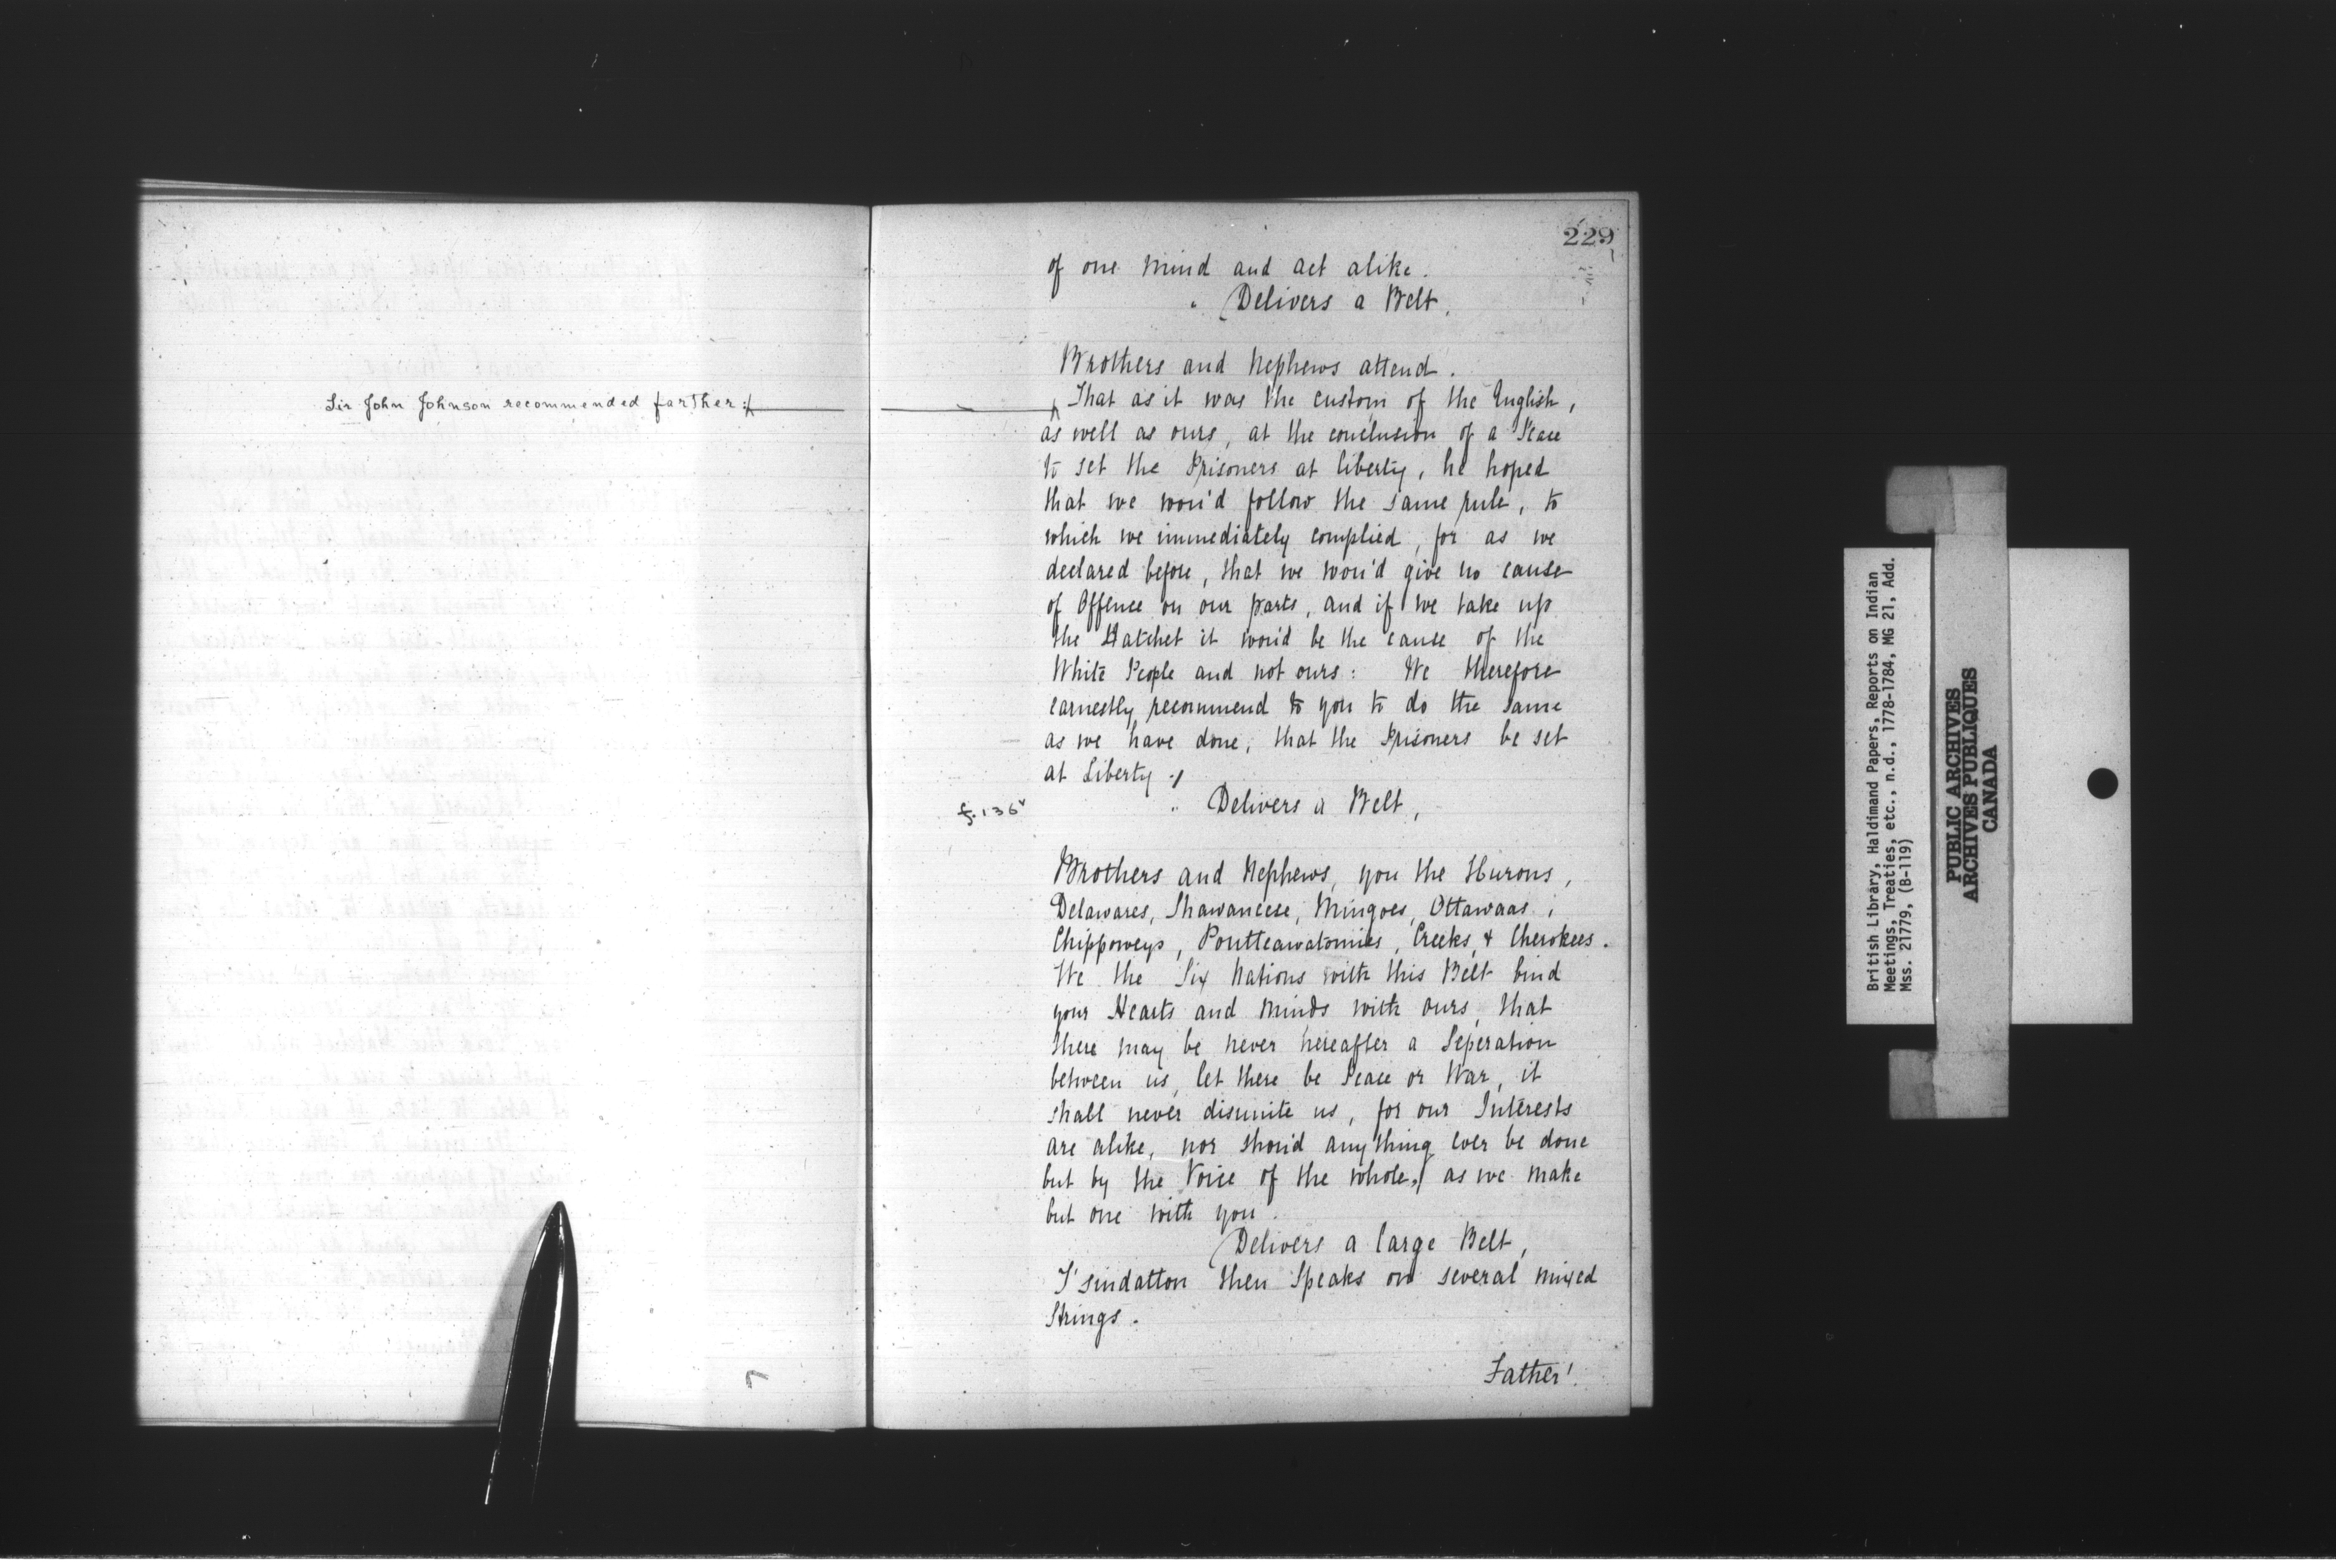 Sir John Johnson recommended farther:/
229
of one mind and act alike.
Delivers a Belt.
Brothers and Nephews attend.
That as it was the custom of the English,
as well as ours, at the conclusion of a Peace
to set the Prisoners at liberty, he hoped
that we wou'd follow the same rule, to
which we immediately complied, for as we
declared before, that we wou'd give no cause
of Offence on our parts, and if we take up
the Hatchet it wou'd be the cause of the
White People and not ours: We therefore
earnestly recommend to you to do the same
as we have done, that the Prisoners be set
at Liberty ./
f. 136v
Delivers a Belt,
Brothers and Nephews, you the Hurons,
Delawares, Shawaneese, Mingoes, Ottawaas,
Chippoweys, Poutteawatomies, Creeks, & Cherokees.
We the Six Nations with this Belt bind
your Hearts and minds with ours, that
there may be never hereafter a Seperation
between us, let there be Peace or War, it
shall never disunite us, for our Interests
are alike, nor shou'd any thing ever be done
but by the Voice of the whole, as we make
but one with you.
Delivers a large Belt,
T'sindatton then Speaks on several mixed
Strings.
Father!
British Library, Haldimand Papers, Reports on Indian
Meetings, Treaties, etc., n.d., 1778-1784, MG 21, Add.
Mss. 21779, (B-119)
PUBLIC ARCHIVES
ARCHIVES PUBLIQUES
CANADA